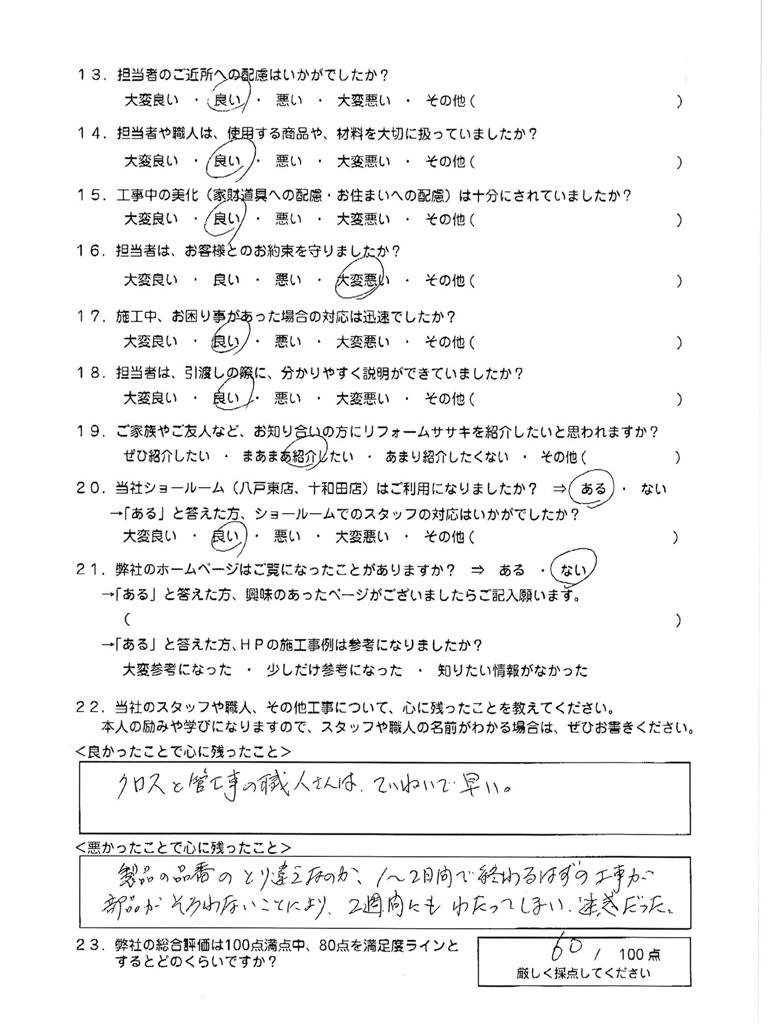 13．担当者のご近所への配慮はいかがでしたか？
大変良い ・ 良い ・ 悪い ・ 大変悪い ・ その他（ ）
14．担当者や職人は、使用する商品や、材料を大切に扱っていましたか？
大変良い ・ 良い ・ 悪い ・ 大変悪い ・ その他（ ）
15．工事中の美化（家財道具への配慮・お住まいへの配慮）は十分にされていましたか？
大変良い ・ 良い ・ 悪い ・ 大変悪い ・ その他（ ）
16．担当者は、お客様とのお約束を守りましたか？
大変良い ・ 良い ・ 悪い ・ 大変悪い ・ その他（ ）
17．施工中、お困り事があった場合の対応は迅速でしたか？
大変良い ・ 良い ・ 悪い ・ 大変悪い ・ その他（ ）
18．担当者は、引渡しの際に、分かりやすく説明ができていましたか？
大変良い ・ 良い ・ 悪い ・ 大変悪い ・ その他（ ）
19．ご家族やご友人など、お知り合いの方にリフォームササキを紹介したいと思われますか？
ぜひ紹介したい ・ まあまあ紹介したい ・ あまり紹介したくない ・ その他（ ）
20．当社ショールーム（八戸東店、十和田店）はご利用になりましたか？ ⇒ ある ・ ない
→「ある」と答えた方、ショールームでのスタッフの対応はいかがでしたか？
大変良い ・ 良い ・ 悪い ・ 大変悪い ・ その他（ ）
21．弊社のホームページはご覧になったことがありますか？ ⇒ ある ・ ない
→「ある」と答えた方、興味のあったページがございましたらご記入願います。
（ ）
→「ある」と答えた方、ＨＰの施工事例は参考になりましたか？
大変参考になった ・ 少しだけ参考になった ・ 知りたい情報がなかった
22．当社のスタッフや職人、その他工事について、心に残ったことを教えてください。
本人の励みや学びになりますので、スタッフや職人の名前がわかる場合は、ぜひお書きください。
＜良かったことで心に残ったこと＞
クロスと管工事の職人さんは、ていねいで早い。
＜悪かったことで心に残ったこと＞
製品の品番のとり違えなのか、1〜2日間で終わるはずの工事が
部品がそろわないことにより、2週間にもわたってしまい、迷惑だった。
23．弊社の総合評価は100点満点中、80点を満足度ラインと
するとどのくらいですか？
60 / 100点
厳しく採点してください